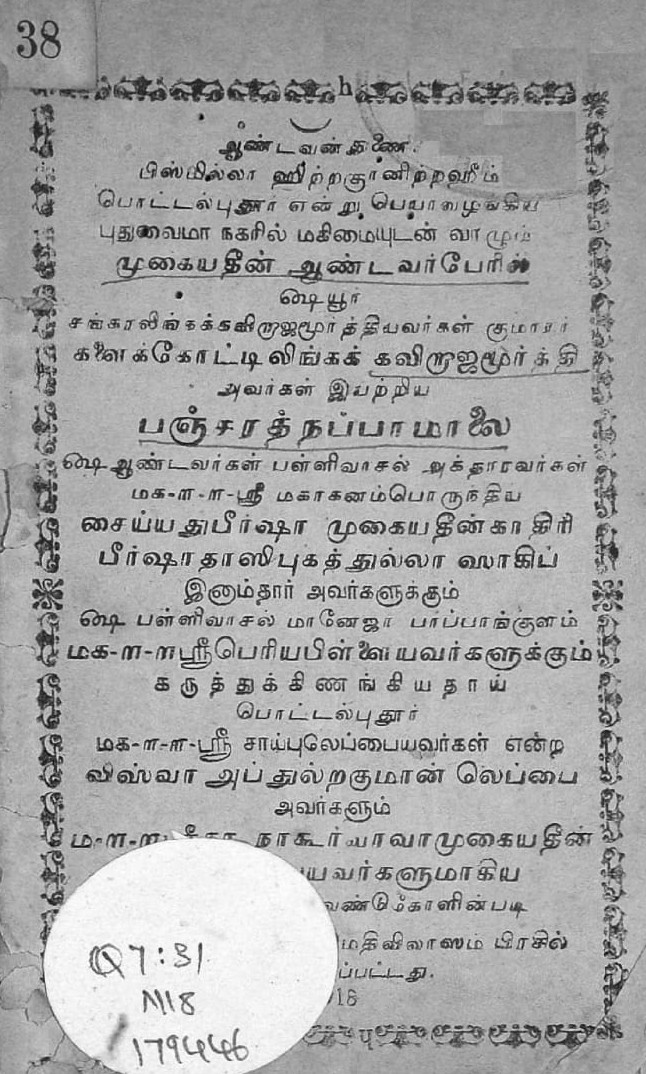 38
h
ஆண்டவன் துணை.
பிஸ்மில்லா ஹிற்றகுமானிற்றஹீம்
பொட்டல்புதூர் என்று பெயர்வழங்கிய
புதுவைமா நகரில் மகிமையுடன் வாழும்
முகையதீன் ஆண்டவர்பேரில்
ஷையூர்
சங்கரலிங்கக்கவிராஜமூர்த்தியவர்கள் குமாரர்
களைக்கோட்டிலிங்கக் கவிராஜமூர்த்தி
அவர்கள் இயற்றிய
பஞ்சரத்நப்பாமாலை
ஷை ஆண்டவர்கள் பள்ளிவாசல் அக்தாரவர்கள்
மக-ள-ள-ஸ்ரீ மகாகனம்பொருந்திய
சைய்யதுபீர்ஷா முகையதீன்காதிரி
பீர்ஷாதாஸிபுகத்துல்லா ஸாகிப்
இனாம்தார் அவர்களுக்கும்
ஷை பள்ளிவாசல் மானேஜர் பாப்பாங்குளம்
மக-ள-ளஸ்ரீபெரியபிள்ளையவர்களுக்கும்
கருத்துக்கிணங்கியதாய்
பொட்டல்புதூர்
மக-ள-ள-ஸ்ரீ சாய்புலெப்பையவர்கள் என்ற
விஸ்வா அப்துல்றகுமான் லெப்பை
அவர்களும்
ம-ள-ள நாகூர்வாவாமுகையதீன்
யவர்களுமாகிய
வேண்டுகோளின்படி
மதிவிலாஸம் பிரசில்
ப்பட்டது.
18
Q7:31
M18
179446